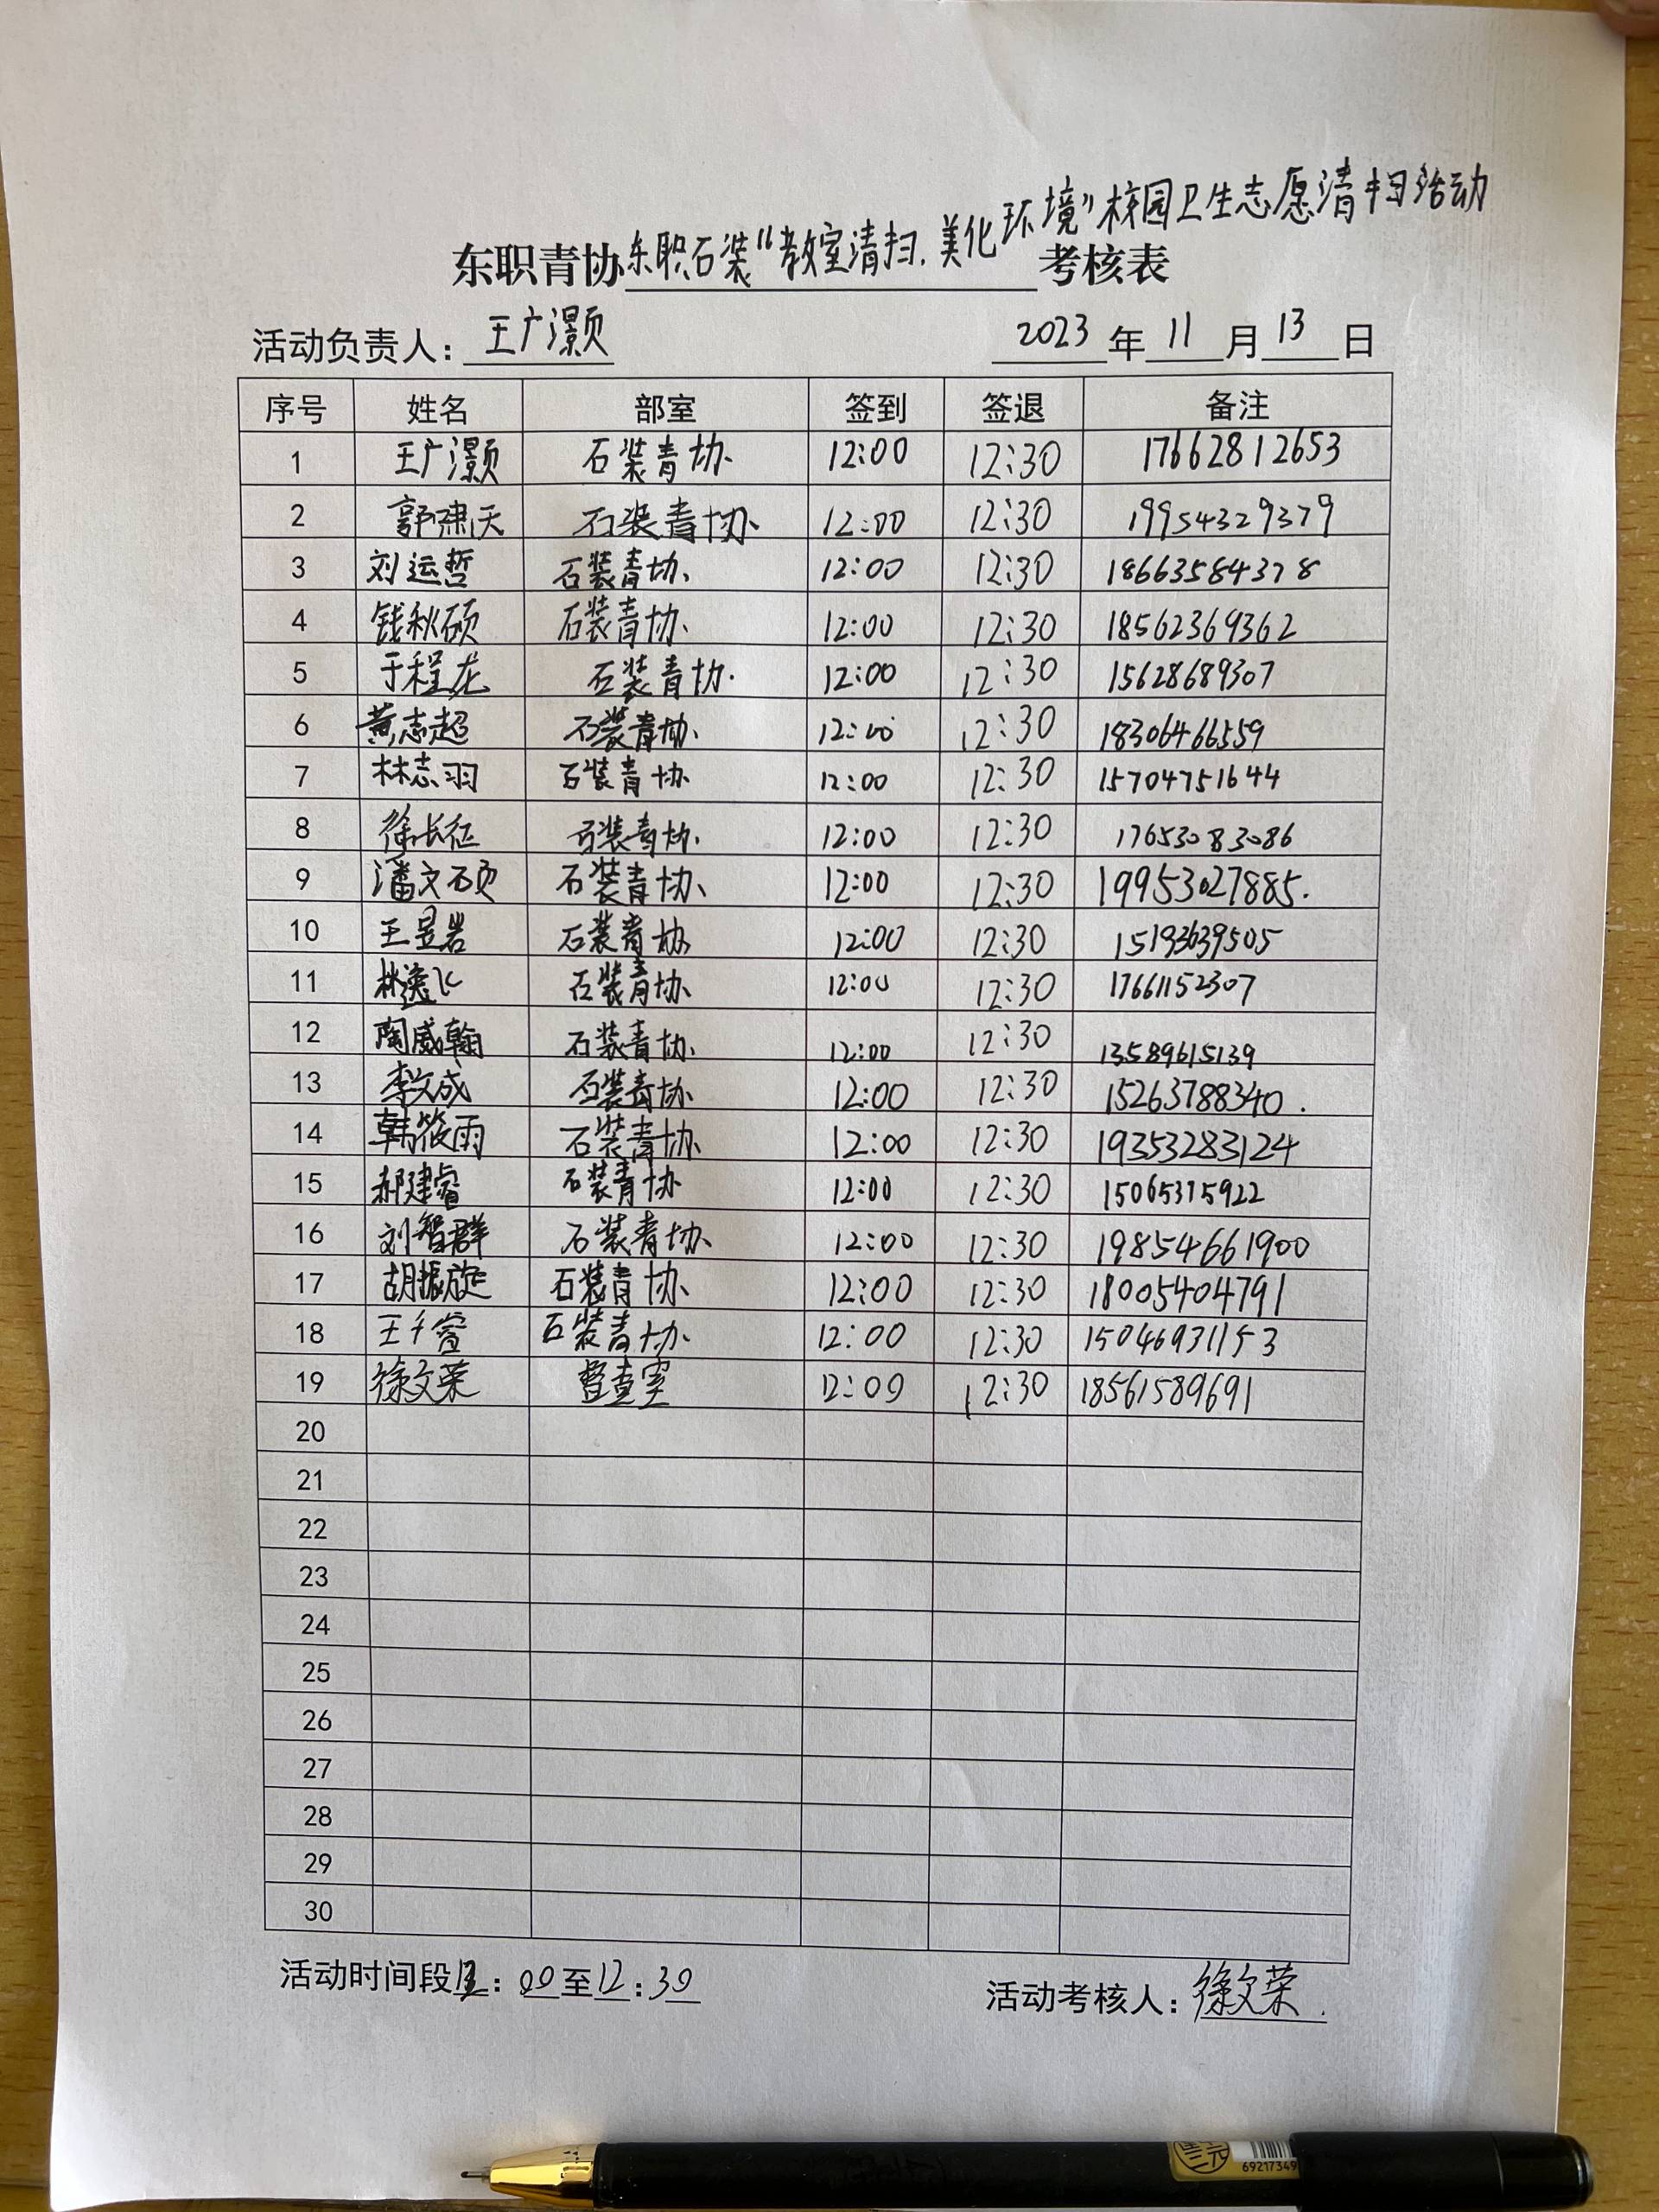 东职青协东职石装“教室清扫.美化环境”校园卫生志愿清扫活动考核表
活动负责人：王广灏 2023年11月13日
序号 姓名 部室 签到 签退 备注
1 王广灏 石装青协 12:00 12:30 17662812653
2 郭肃天 石装青协 12:00 12:30 19954329379
3 刘运哲 石装青协 12:00 12:30 18663584378
4 钱秋硕 石装青协 12:00 12:30 18562369362
5 于程龙 石装青协 12:00 12:30 15628689307
6 黄志超 石装青协 12:00 12:30 18306466559
7 林志羽 石装青协 12:00 12:30 15704751644
8 徐长征 石装青协 12:00 12:30 17653083086
9 潘文硕 石装青协 12:00 12:30 19953027885.
10 王昱岩 石装青协 12:00 12:30 15193639505
11 林逸飞 石装青协 12:00 12:30 17661152307
12 陶威翰 石装青协 12:00 12:30 13589615139
13 李文成 石装青协 12:00 12:30 15263788340.
14 韩筱雨 石装青协 12:00 12:30 19353283124
15 郝建睿 石装青协 12:00 12:30 15065375922
16 刘智群 石装青协 12:00 12:30 19854661900
17 胡振旋 石装青协 12:00 12:30 18005404791
18 王千睿 石装青协 12:00 12:30 15046931153
19 徐文荣 督查室 12:00 12:30 18561589691
20
21
22
23
24
25
26
27
28
29
30
活动时间段12：00至12：30 活动考核人：徐文荣.
69217349